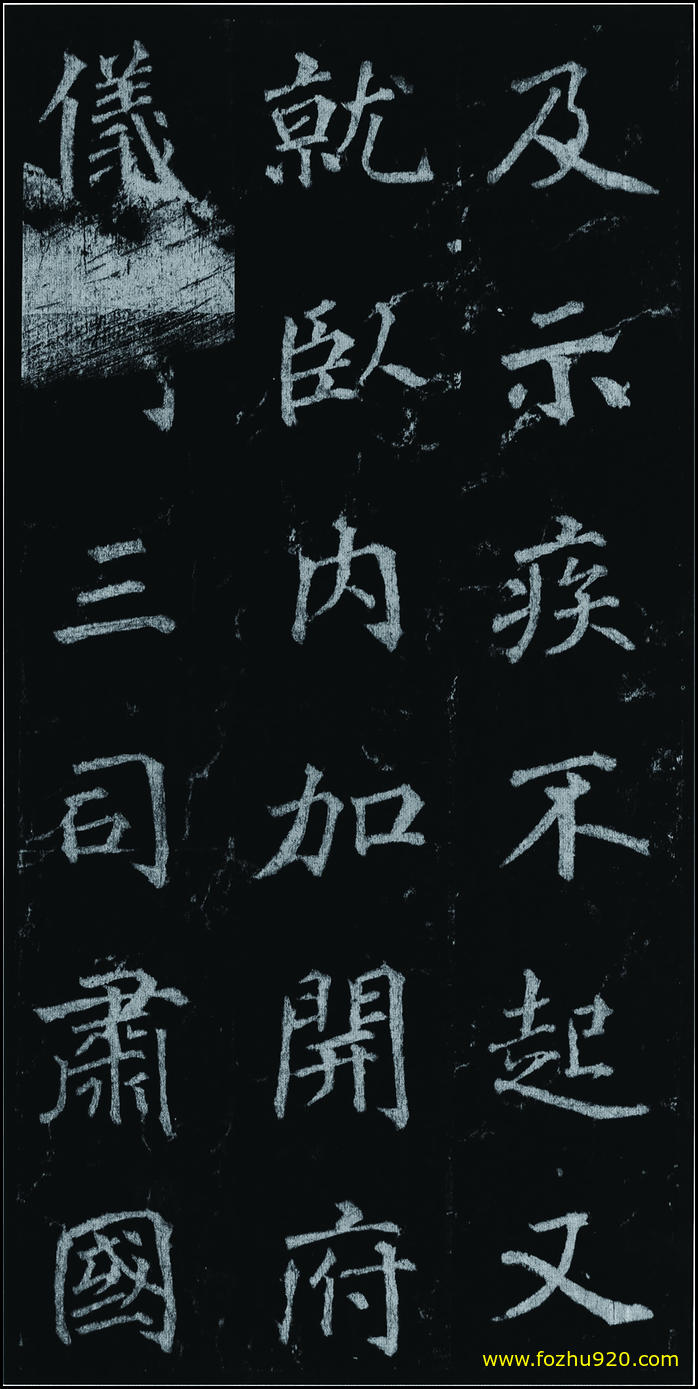 及示疾不起又
就臥内加開府
儀三司肅國
www.fozhu920.com